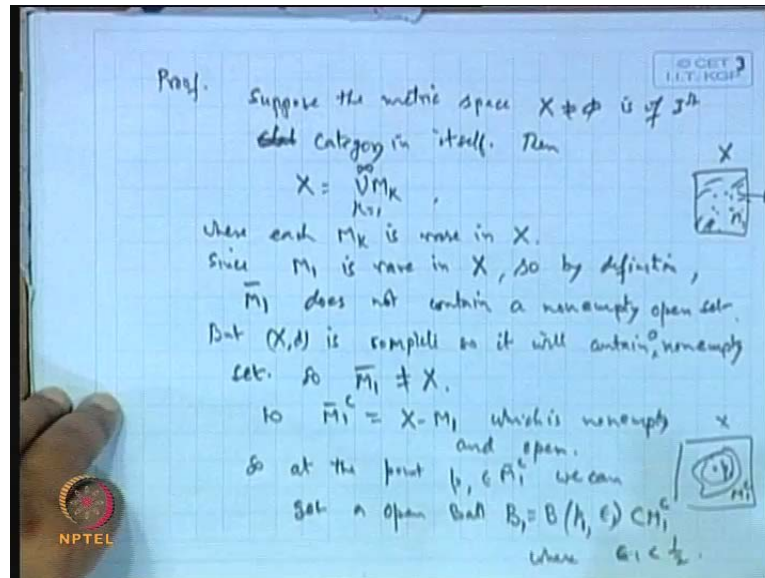 © CET
I.I.T. KGP
3
Proof.
Suppose the metric space X ≠ φ is of Ist
category in itself. Then
X = ∞∪k=1 Mk ,
X
where each Mk is rare in X.
Since M1 is rare in X, so by definition,
M̄1 does not contain a nonempty open set.
But (X,d) is complete so it will contain a nonempty
set. So M̄1 ≠ X.
so M̄1^c = X - M1 which is nonempty
and open.
X
so at the point p1 ∈ M̄1^c we can
M1^c
get a open Ball B1 = B(p1, ϵ1) ⊂ M1^c
where ϵ1 < 1/2.
NPTEL